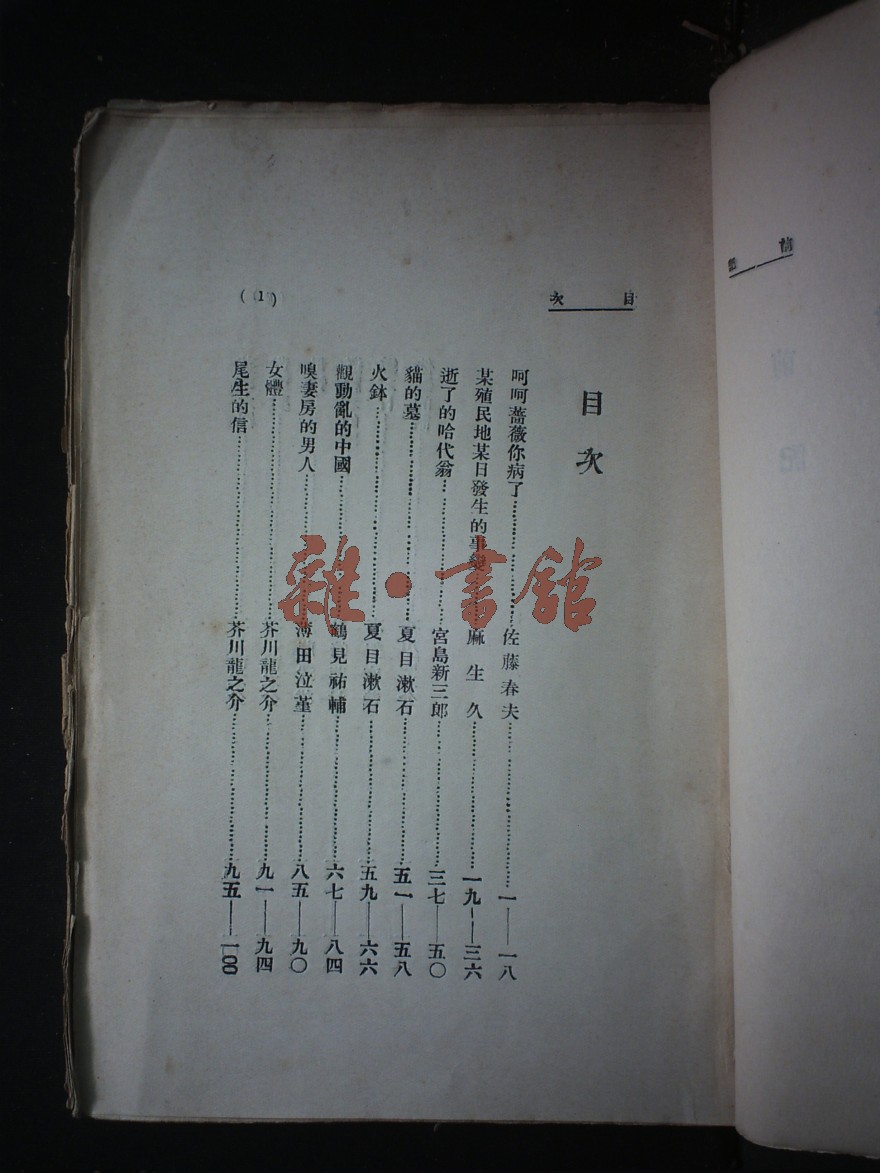 目次
目次
呵呵薔薇你病了……佐藤春夫……一——一八
某殖民地某日發生的事變……麻生久……一九——三六
逝了的哈代翁……宮島新三郎……三七——五〇
貓的墓……夏目漱石……五一——五八
火鉢……夏目漱石……五九——六六
觀動亂的中國……鶴見祐輔……六七——八四
嗅妻房的男人……薄田泣菫……八五——九〇
女體……芥川龍之介……九一——九四
尾生的信……芥川龍之介……九五——一〇〇
(1)
雜·書館